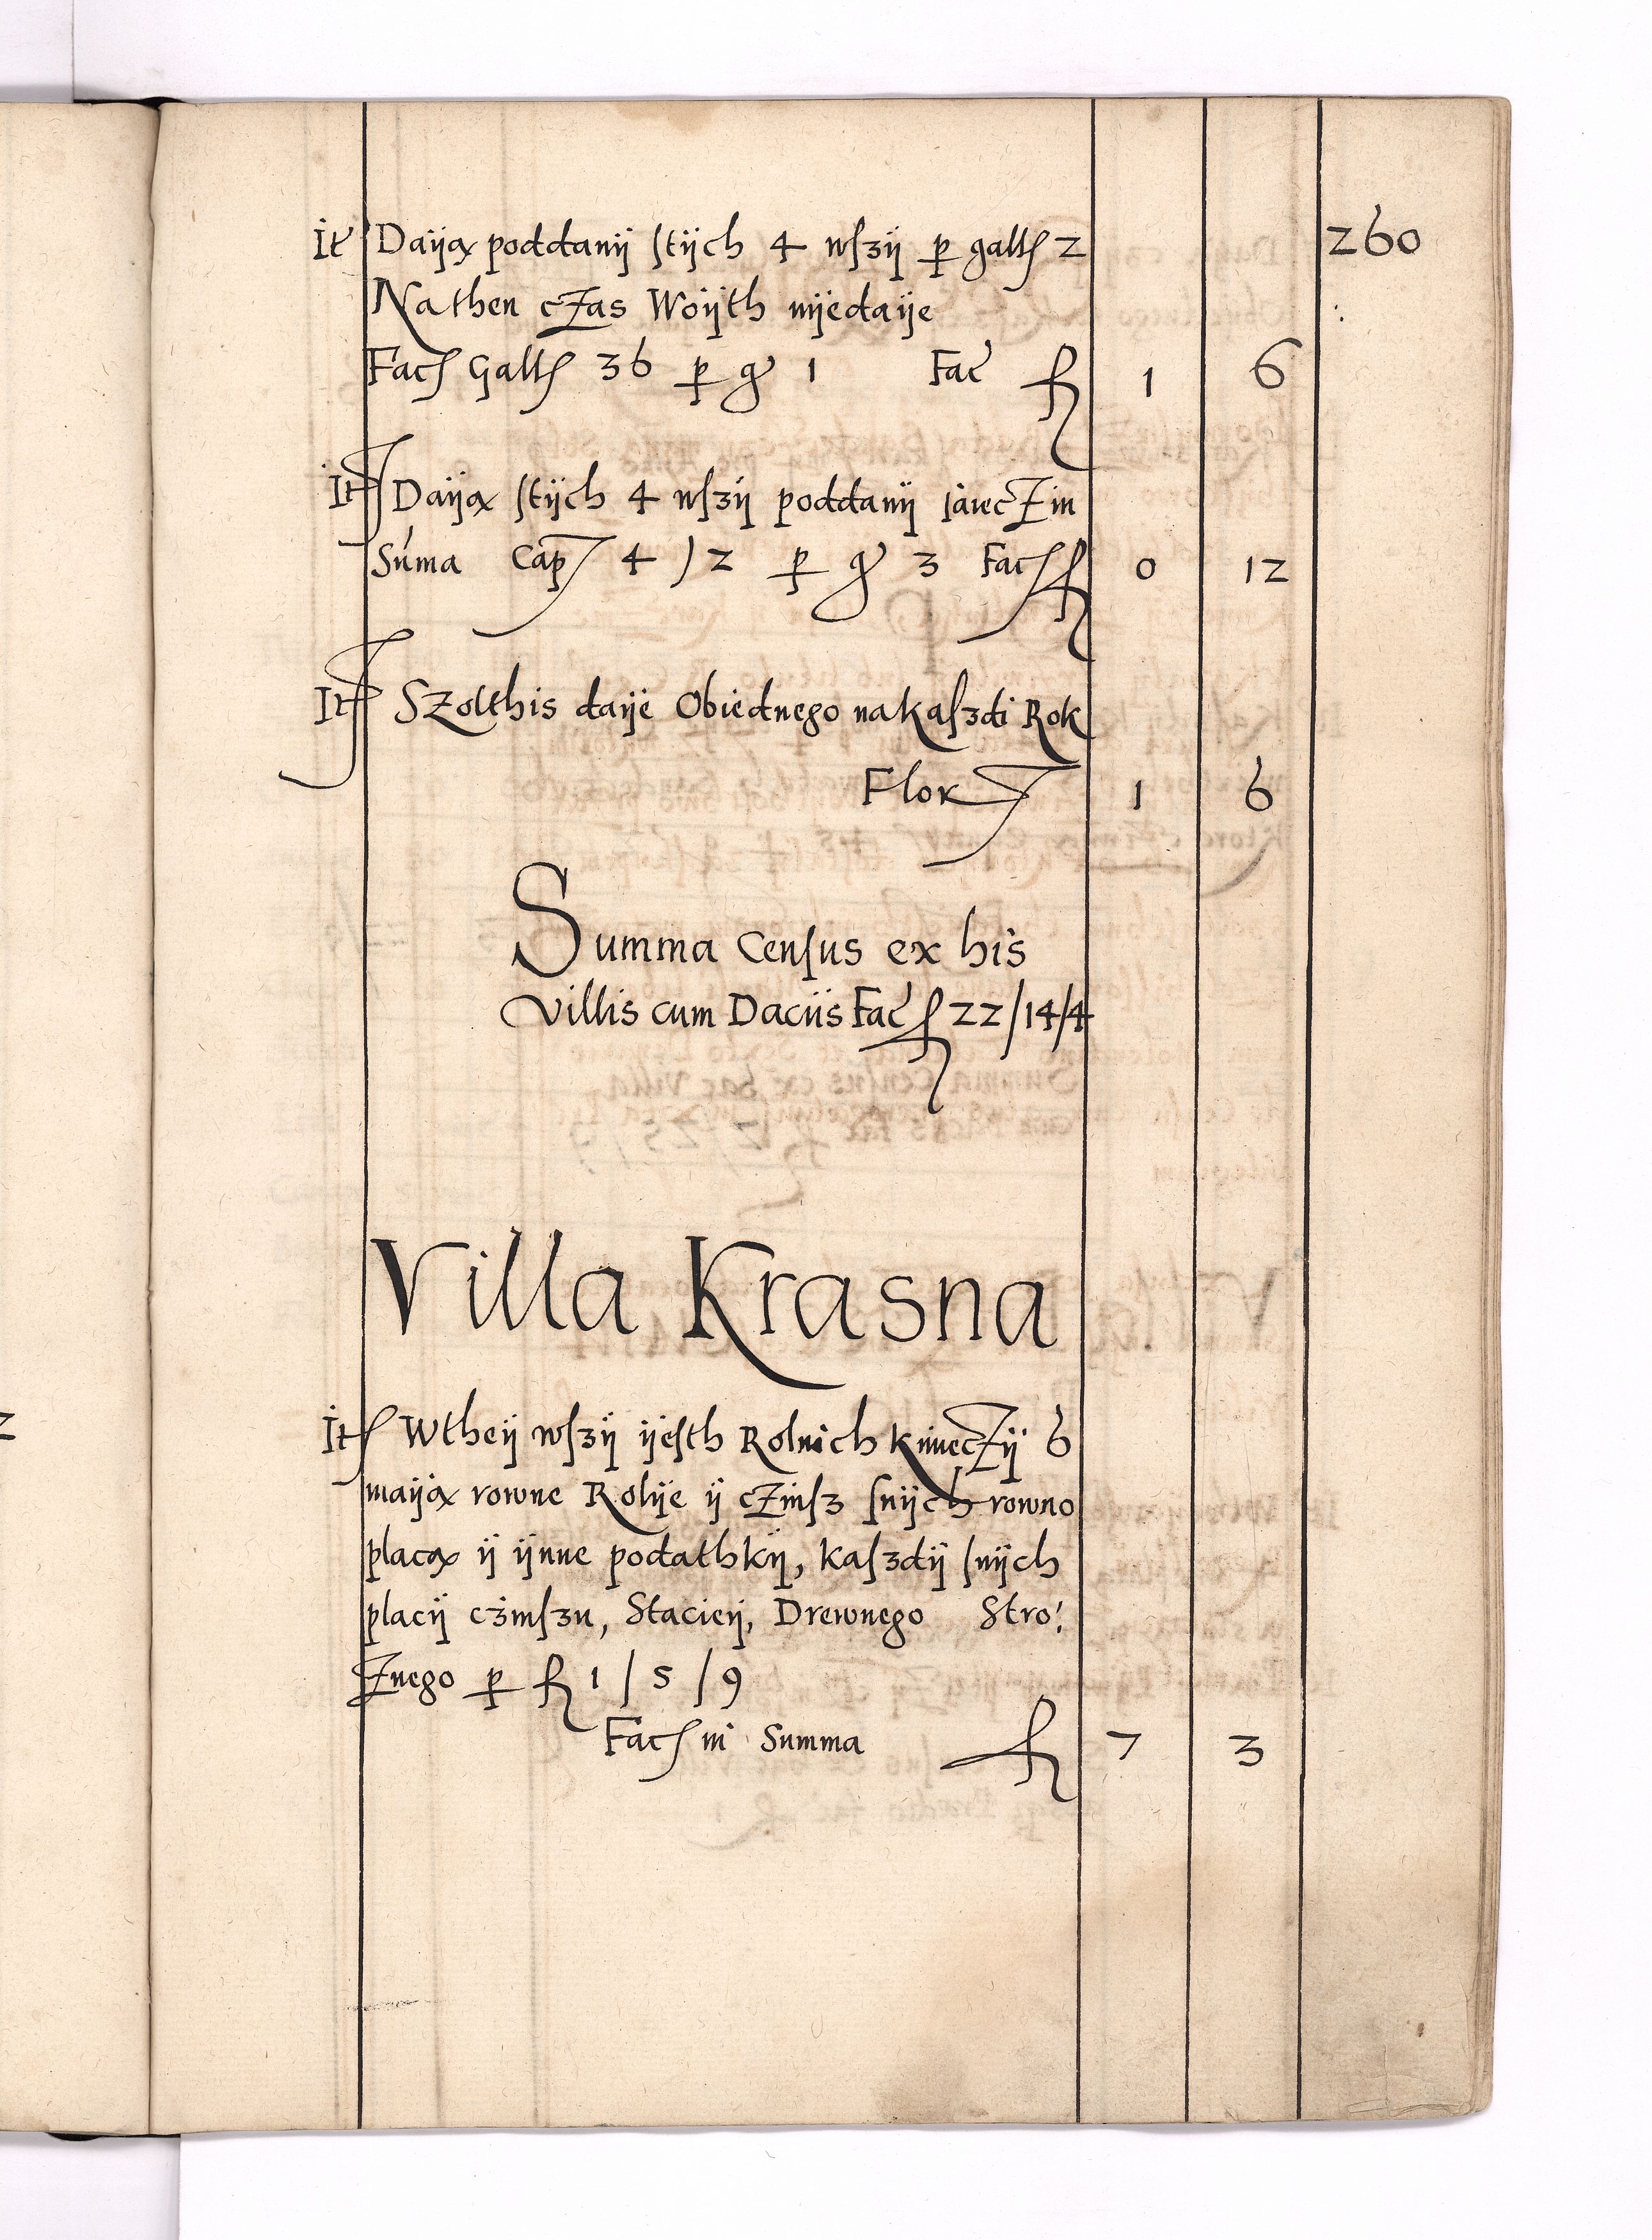 260
It Daiją poddanij stijch 4 wszij per gallos 2
Nathen czas Woijth nijedaije
Fac Gallos 36 per gr 1 Fac fl 1 6
It Daiją stijch 4 wszij poddanij iaiec Zin
Suma Cap 4 / 2 per gr 3 Fac fl 0 12
It Szolthis daije Obiednego na kaszdi Rok
Flor 1 6
Summa Census ex his
villis cum Daciis Fac fl 22/14/4
Villa Krasna
It Wtheij wszij ijesth Rolnich kmieczij 6
maiją rowne Rolije ij czinsz snijch rowno
placą ij ijnne podathkij, kaszdij snijch
placij czinszu, Stacieij, Drewnego Stro:
Znego per fl 1 / 5 / 9
Fac in Summa fl 7 3